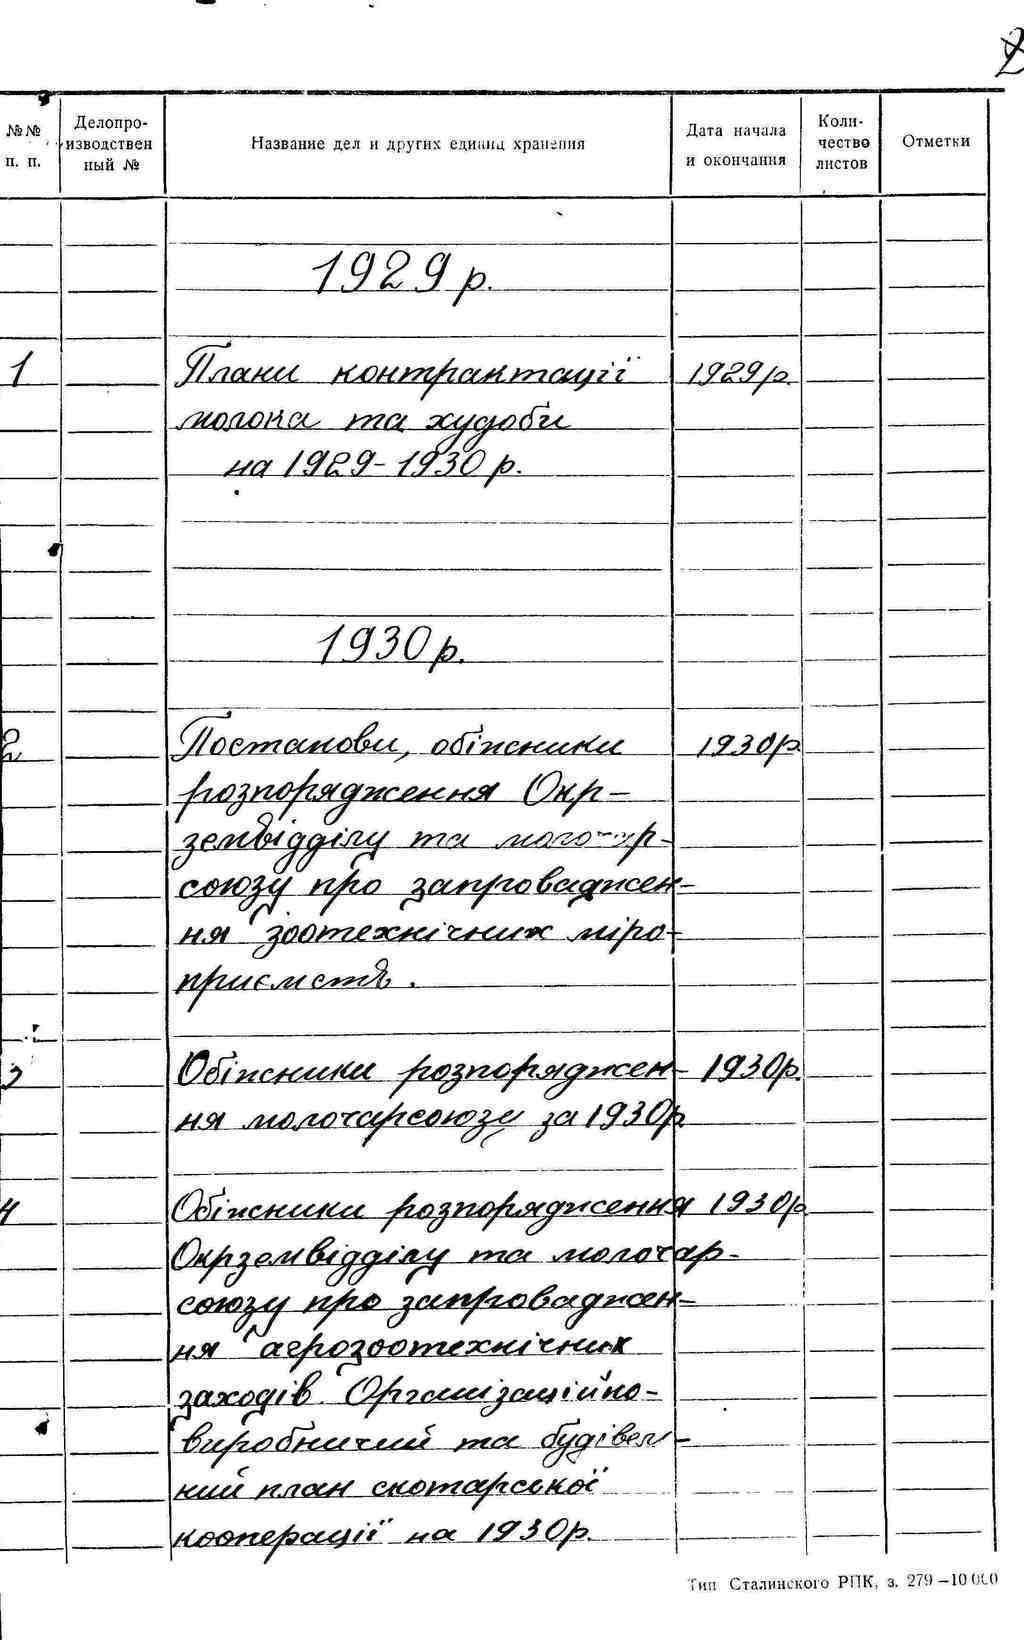 2
№№ п. п.
Делопро-
изводствен
ный №
Название дел и других единиц хранения
Дата начала
и окончания
Коли-
чество
листов
Отметки
1929 р.
1 Плани контрактації 1929 р.
молока та худоби
на 1929-1930 р.
1930 р.
2 Постанови, обіжники 1930 р.
розпорядження Окр-
земвідділу та
союзу про запроваджен-
ня зоотехнічних міро-
приємств.
3 Обіжники розпоряджен- 1930р.
ня молочарсоюзу за 1930р
4 Обіжники розпорядження 1930р
Окрземвідділу та молочар-
союзу про запроваджен-
ня агрозоотехнічних
заходів. Організаційно-
виробничий та будівель-
ний план скотарської
кооперації на 1930р.
Тип Сталинского РПК, з. 279—10 000